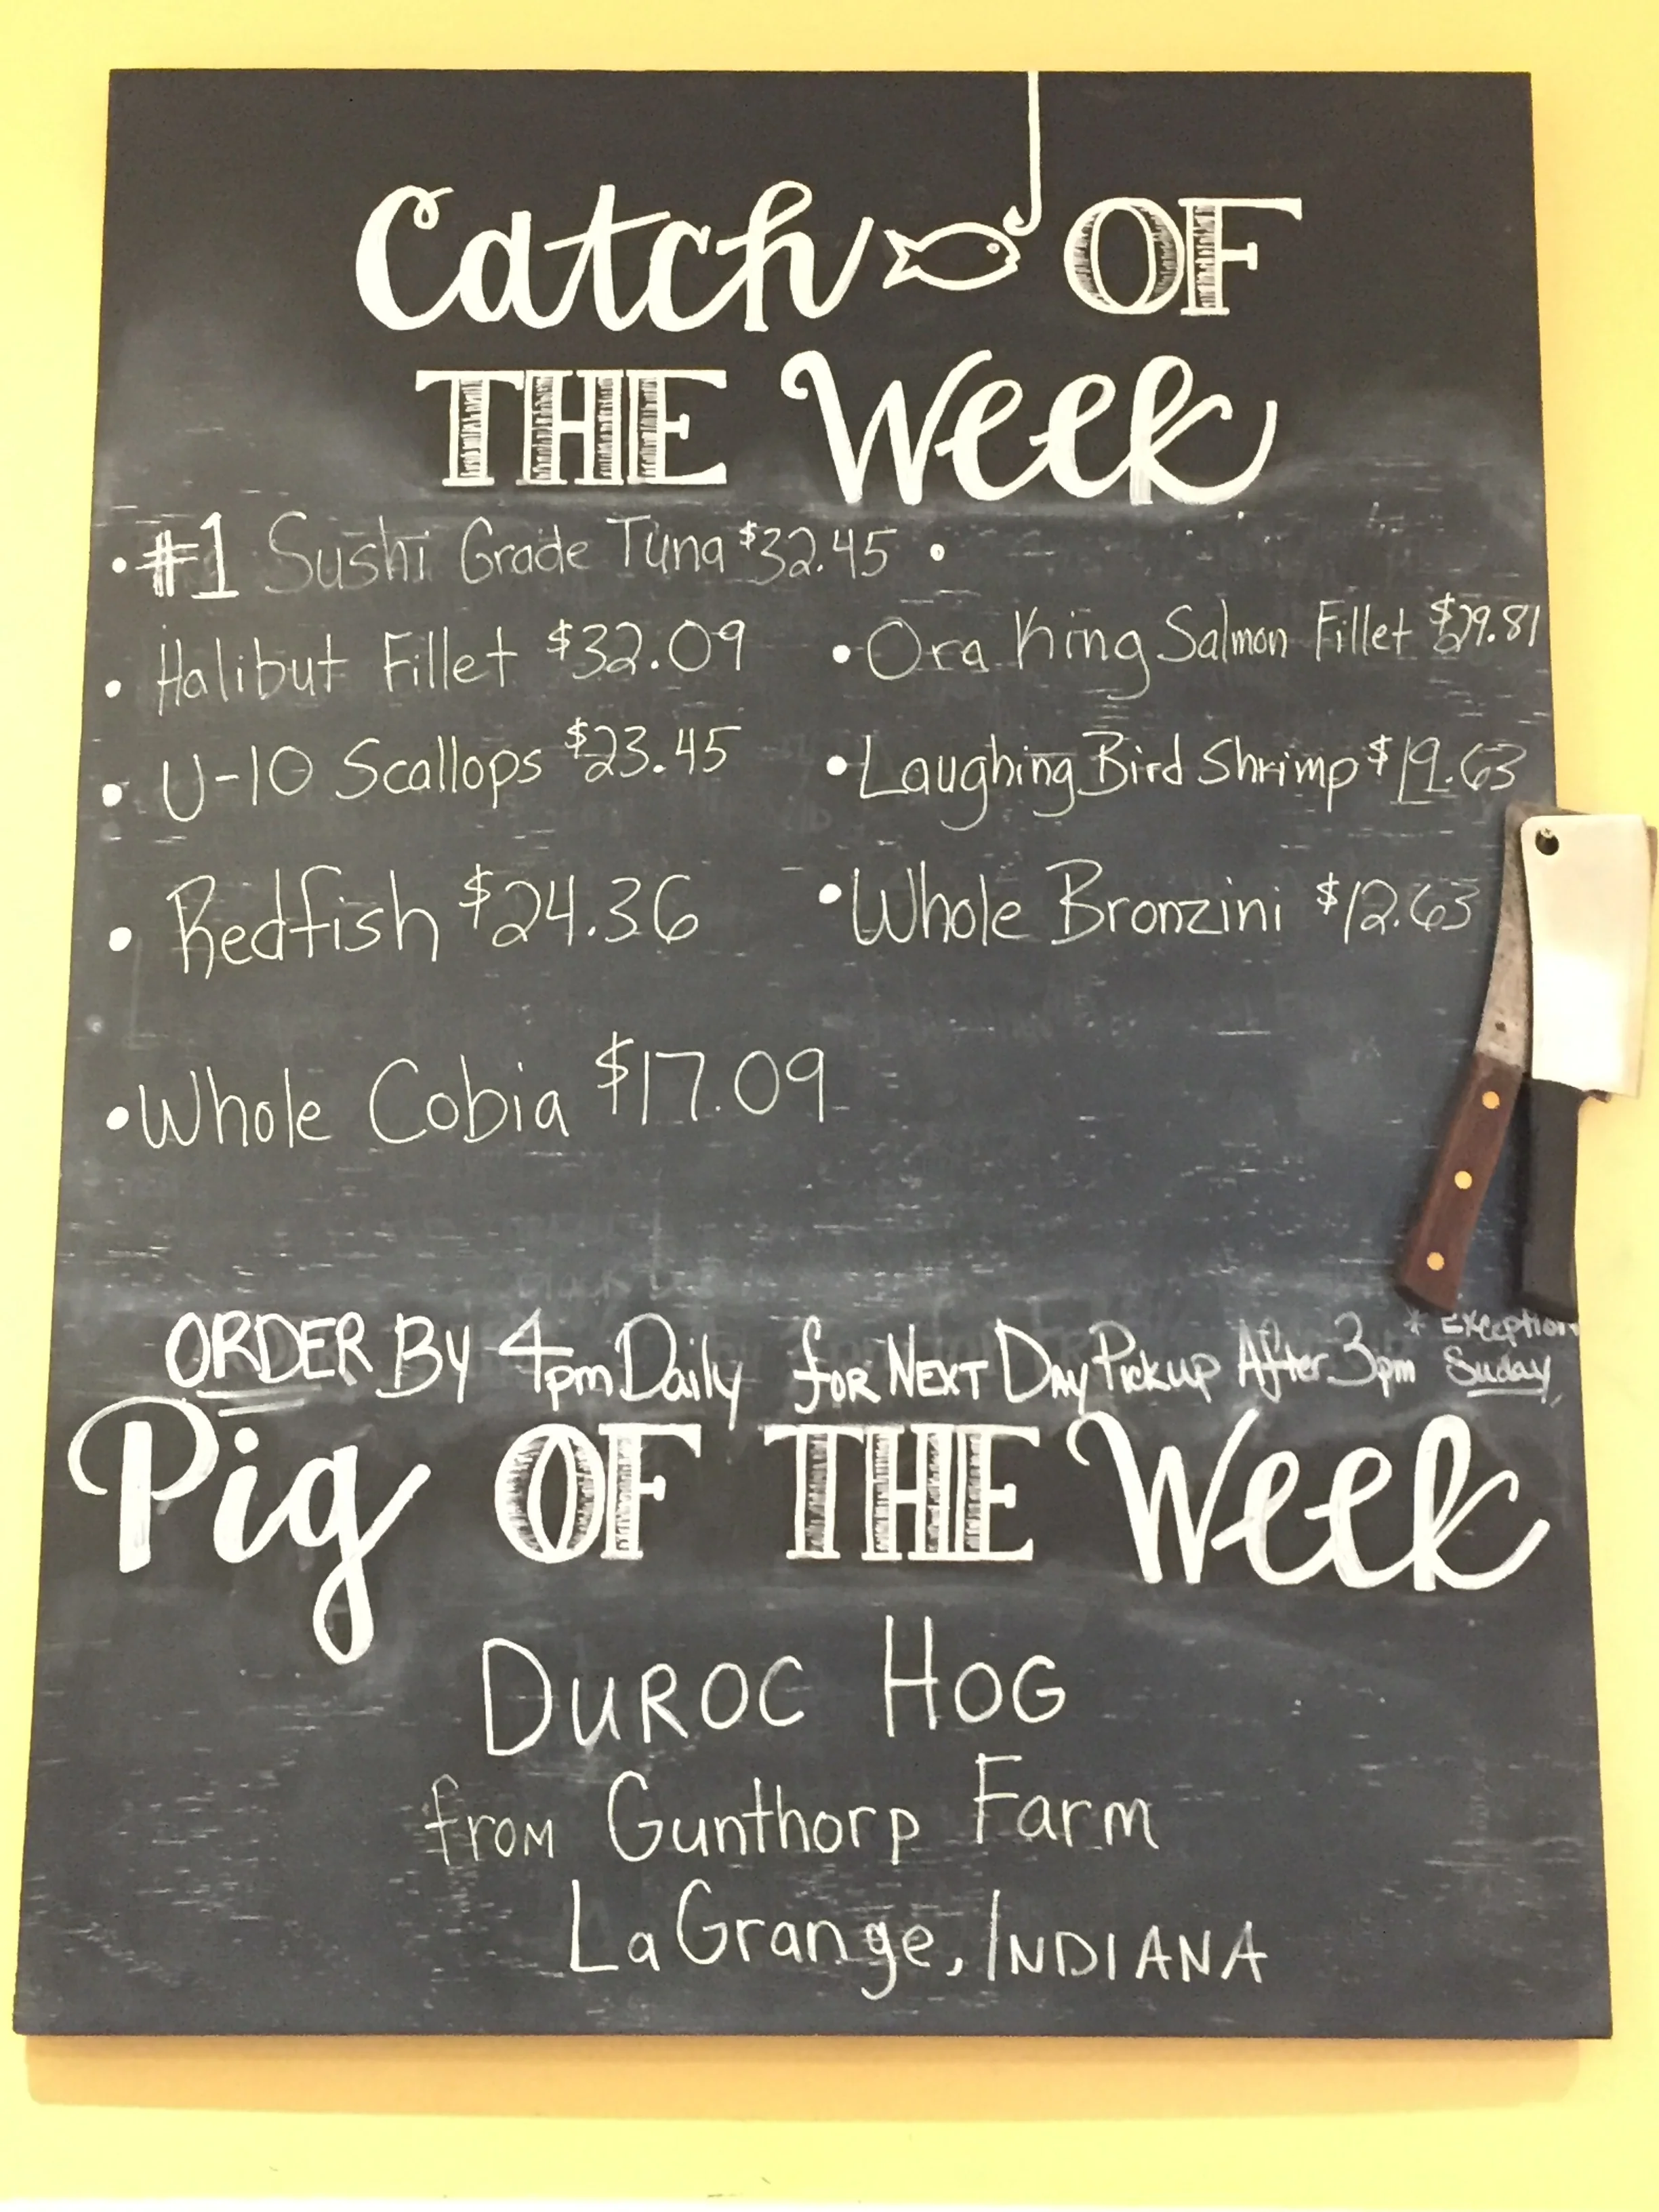 Catch OF
THE Week
• #1 Sushi Grade Tuna $32.45 •
• Halibut Fillet $32.09
• Ora King Salmon Fillet $29.81
• U-10 Scallops $23.45
• Laughing Bird Shrimp $19.63
• Redfish $24.36
• Whole Bronzini $12.63
• Whole Cobia $17.09
ORDER By 4pm Daily for NEXT DAy Pickup After 3pm * Exception Suday
Pig OF THE Week
DUROC HOG
from Gunthorp Farm
LaGrange, INDIANA